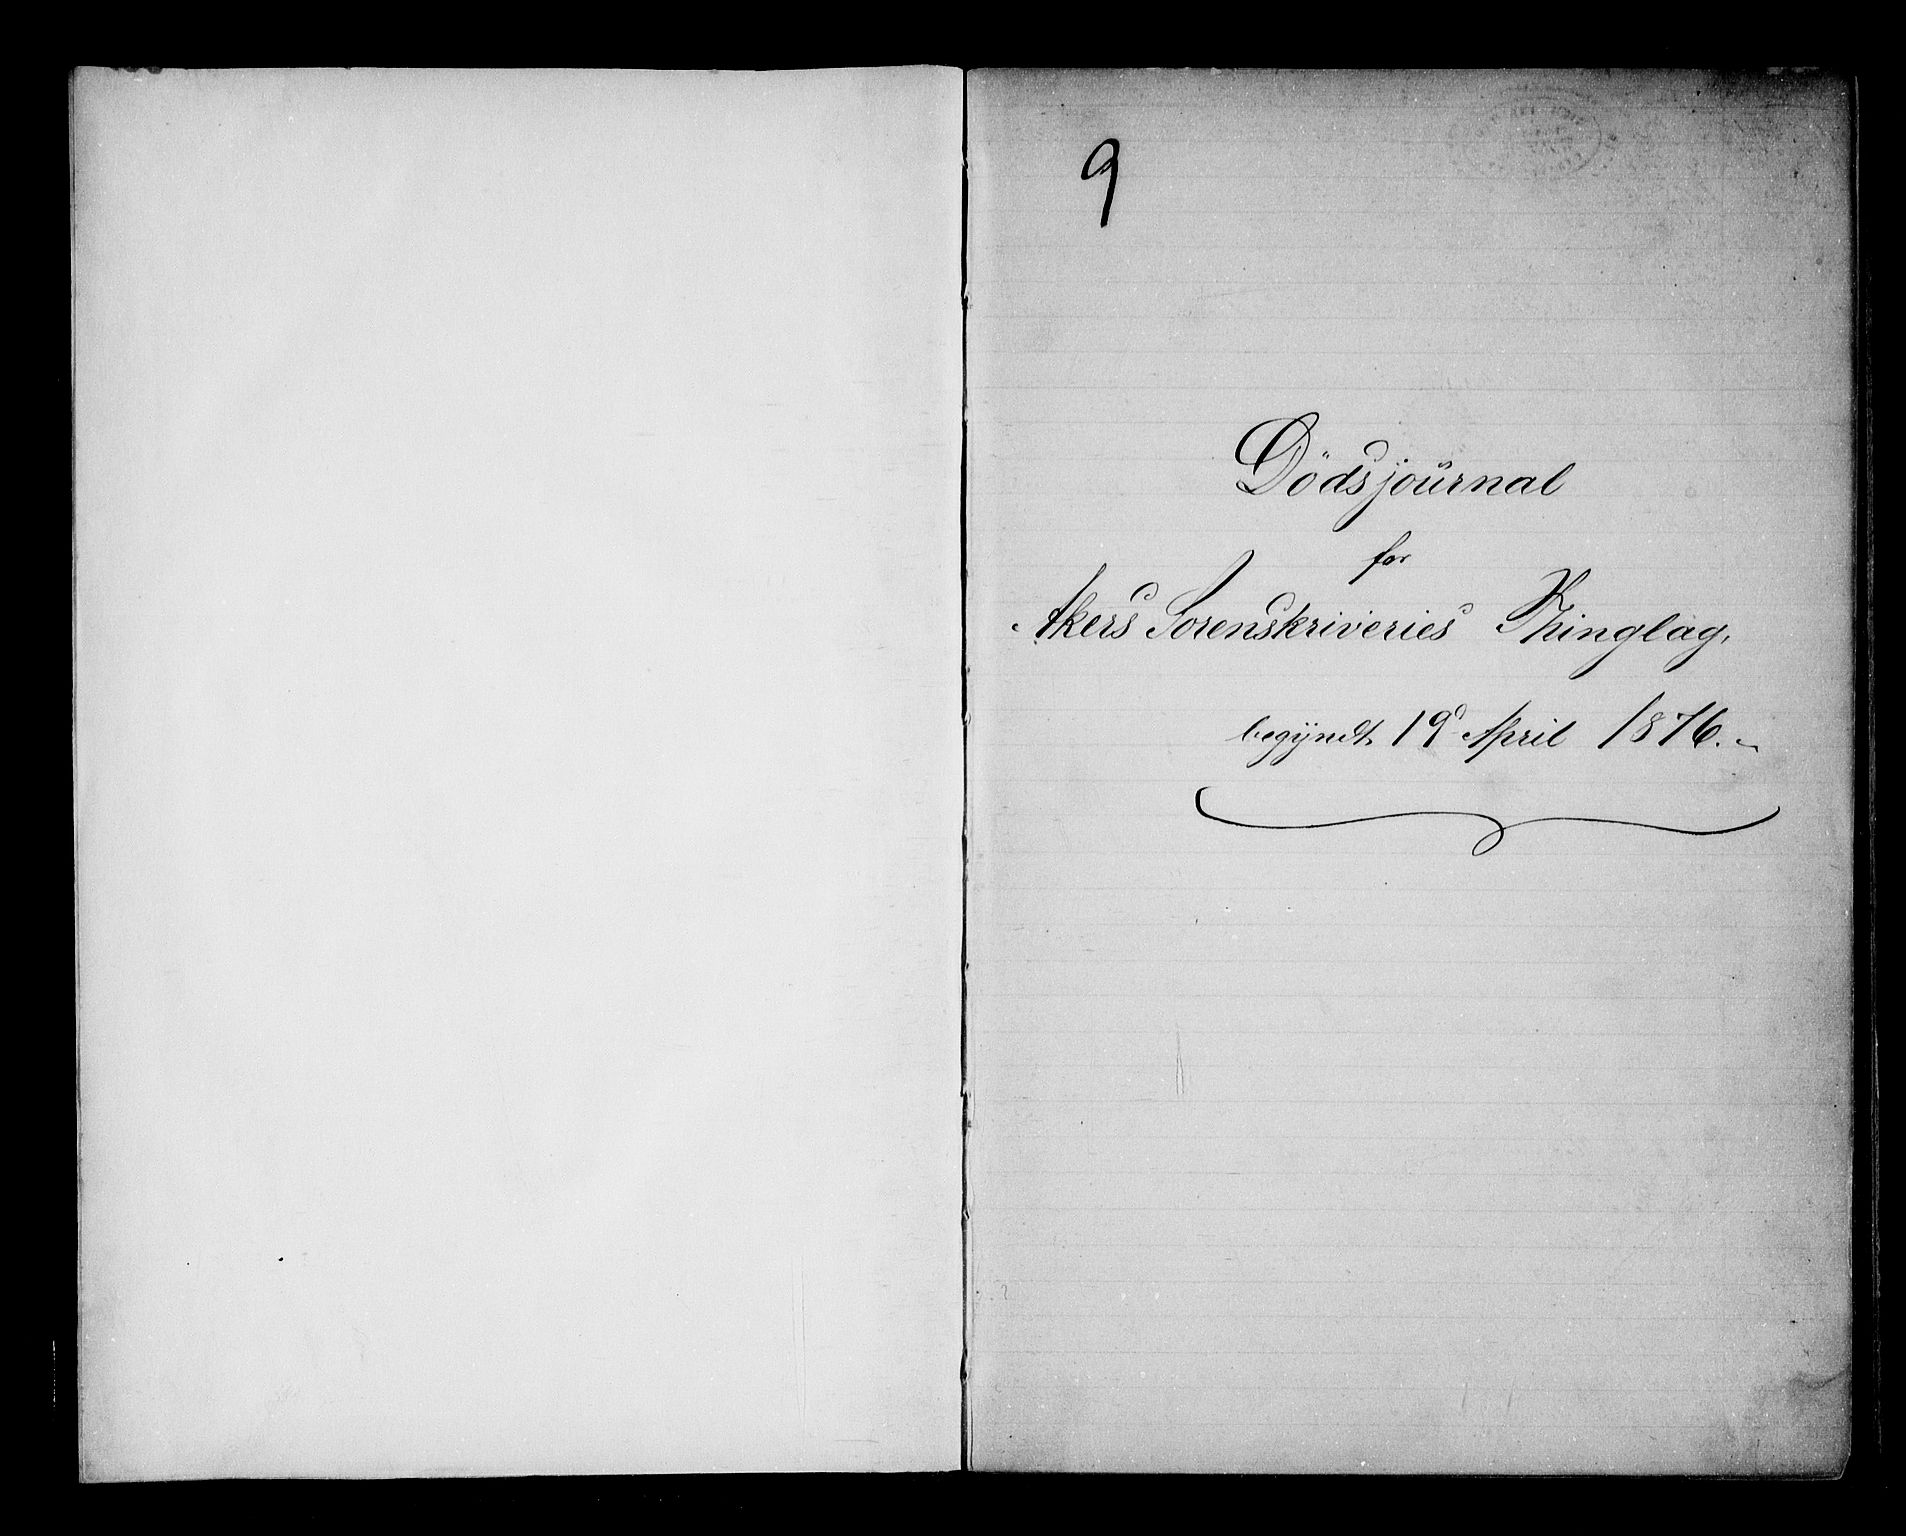 9
Dödsjoŭrnal
for
Akers Sorenskriveries Thinglag,
begÿndt 19d April 1876.